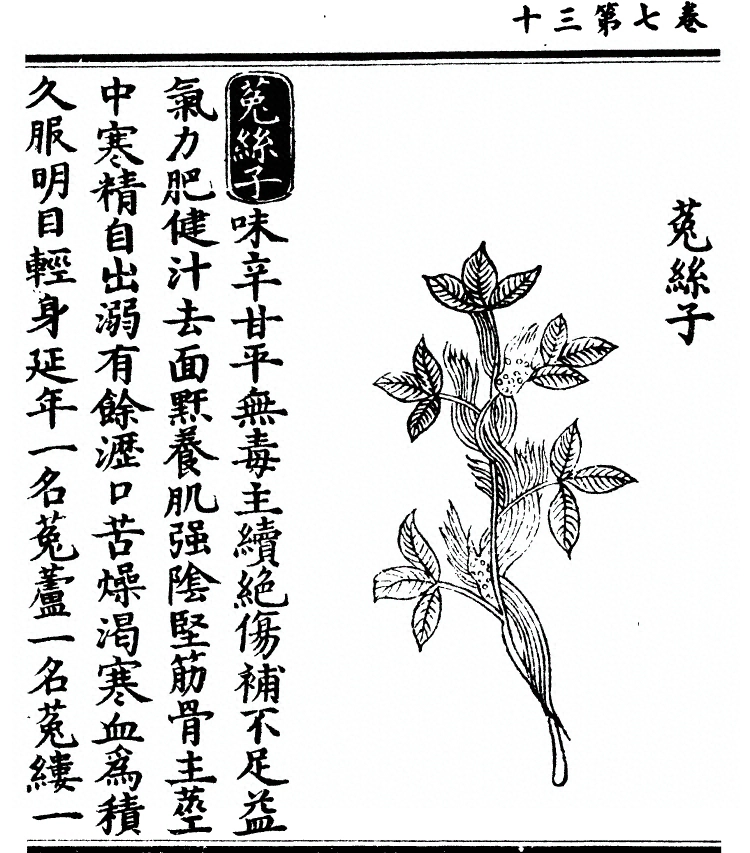 卷七第三十
菟絲子
菟絲子味辛甘平無毒主續絕傷補不足益
氣力肥健汁去面䵟養肌强陰堅筋骨主莖
中寒精自出溺有餘瀝口苦燥渴寒血爲積
久服明目輕身延年一名菟蘆一名菟縷一